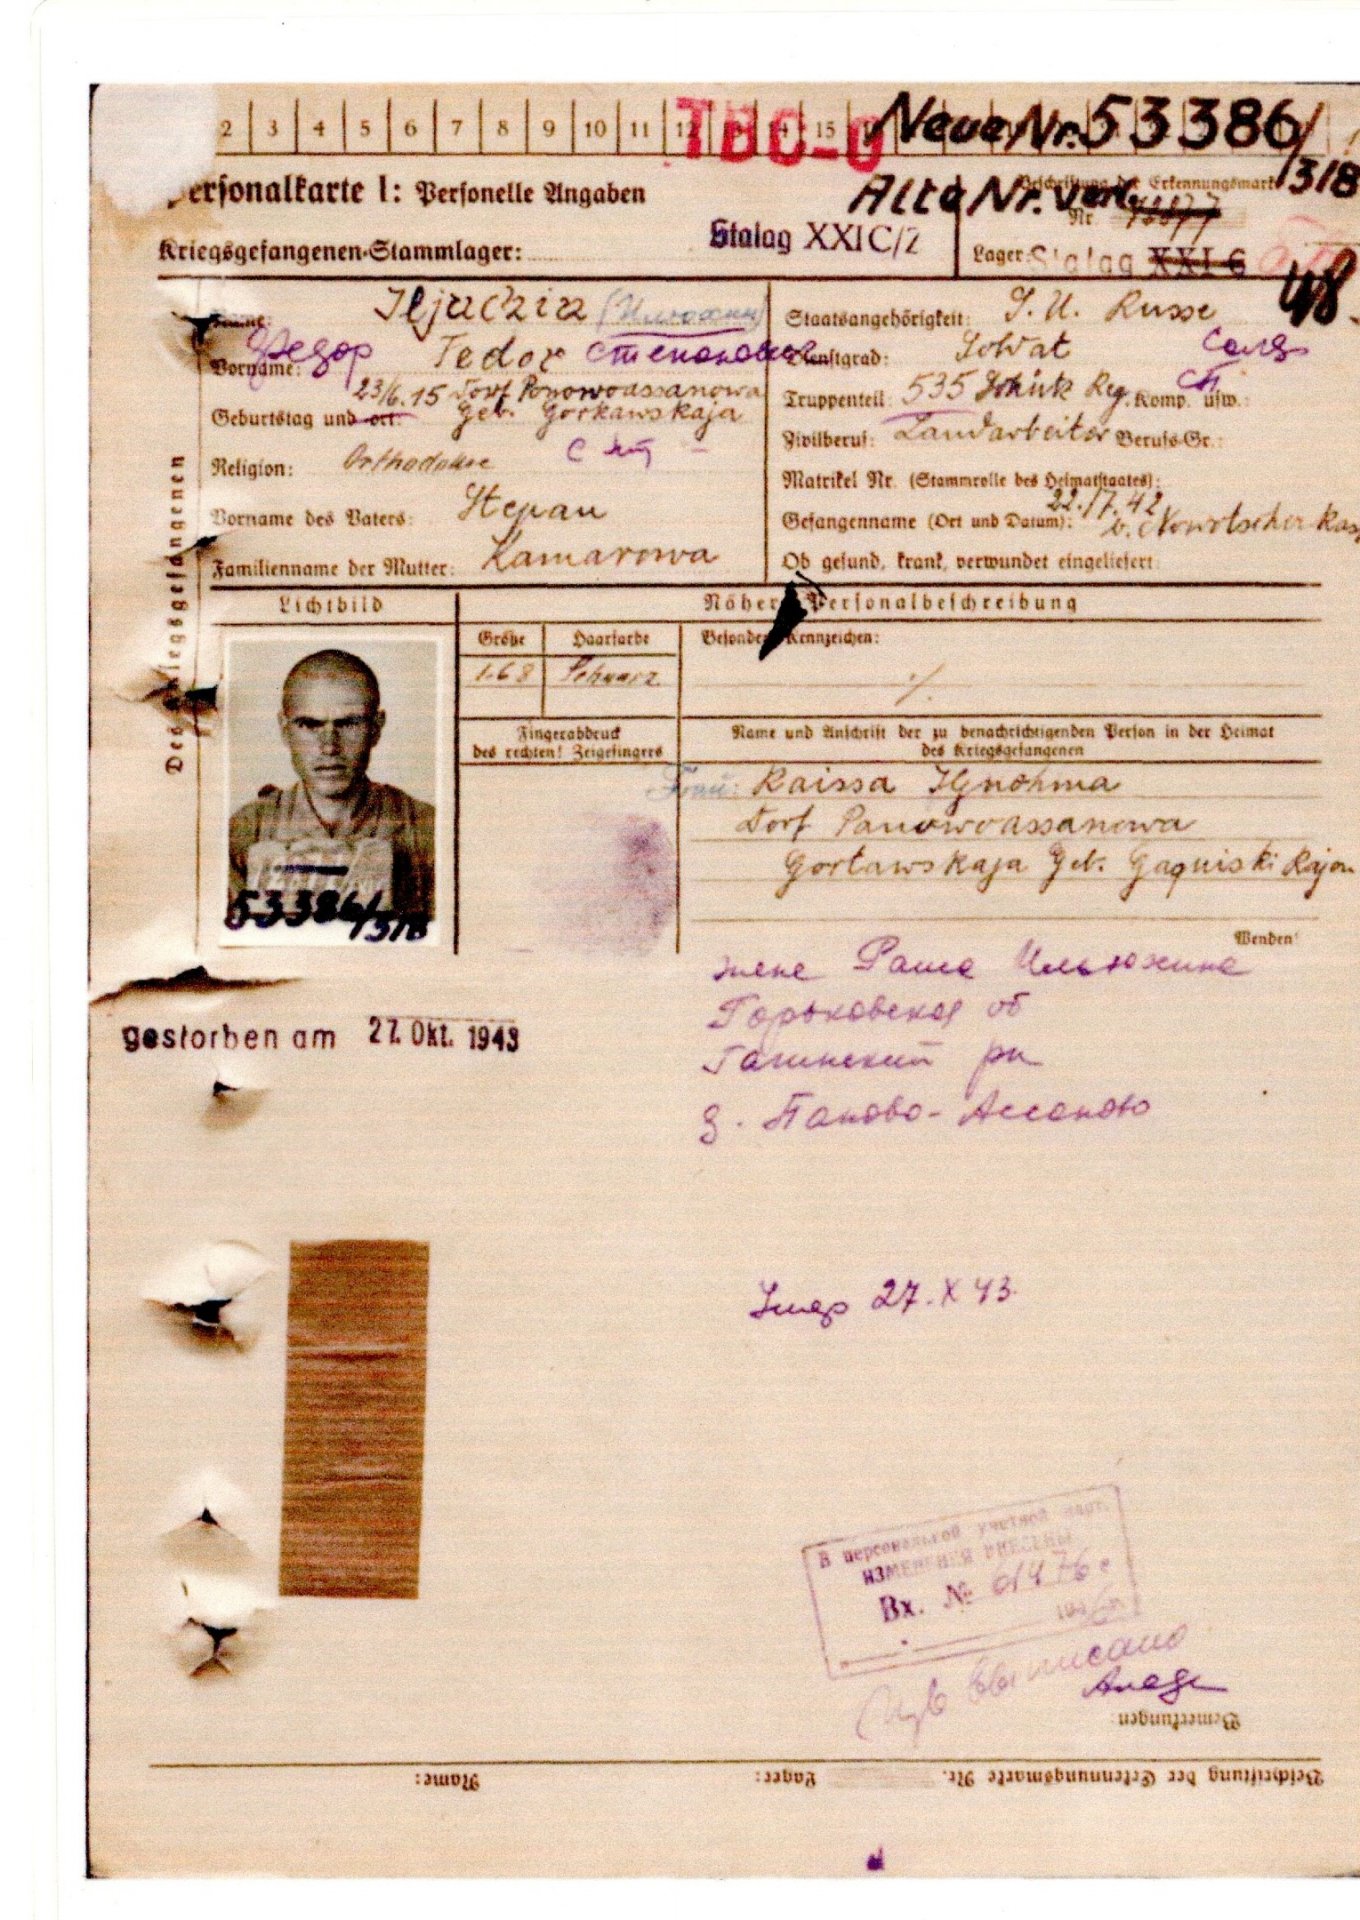 2 3 4 5 6 7 8 9 10 11 12 14 15
Neue Nr. 53386/318
Personalkarte I: Personelle Angaben
Alte Nr. verl.
Beschriftung der Erkennungsmarke
Nr.
Kriegsgefangenen-Stammlager: Stalag XXI C/Z
Lager: Stalag XXI C
48
Des Kriegsgefangenen
Name:
Staatsangehörigkeit: S. U. Russe
Федор Степанович
Vorname: Fedor
Dienstgrad: Soldat
23/6.15 Dorf Ponowoassanowa
Geburtstag und -ort: Geb. Gorkawskaja
Truppenteil: 535 Schütz Reg. Komp. usw.:
Zivilberuf: Landarbeiter Berufs-Gr.:
Religion: Orthodoxe
Matrikel Nr. (Stammrolle des Heimatstaates):
Vorname des Vaters: Stepan
Gefangenname (Ort und Datum):
Familienname der Mutter: Kamarowa
Ob gesund, krank, verwundet eingeliefert:
Lichtbild
Nähere Personalbeschreibung
Größe Haarfarbe Besondere Kennzeichen:
1.68 Schwarz ./.
Fingerabdruck
des rechten! Zeigefingers
Name und Anschrift der zu benachrichtigenden Person in der Heimat
des Kriegsgefangenen
Frau: Raissa
Dorf Panowoassanowa
Gortawskaja Geb. Gaguiski Rajon
53386/318
Wenden!
жене Раиса Ильюхина
Горьковская об
Гагинский рн
д. Паново-Ассаново
gestorben am 27. Okt. 1943
Умер 27.X 43
В персональной учетной карт.
ИЗМЕНЕНИЯ ВНЕСЕНЫ
Вх. № 01476с
194
выписано
Bemerkungen:
Beschriftung der Erkennungsmarke Nr. Lager: Name: